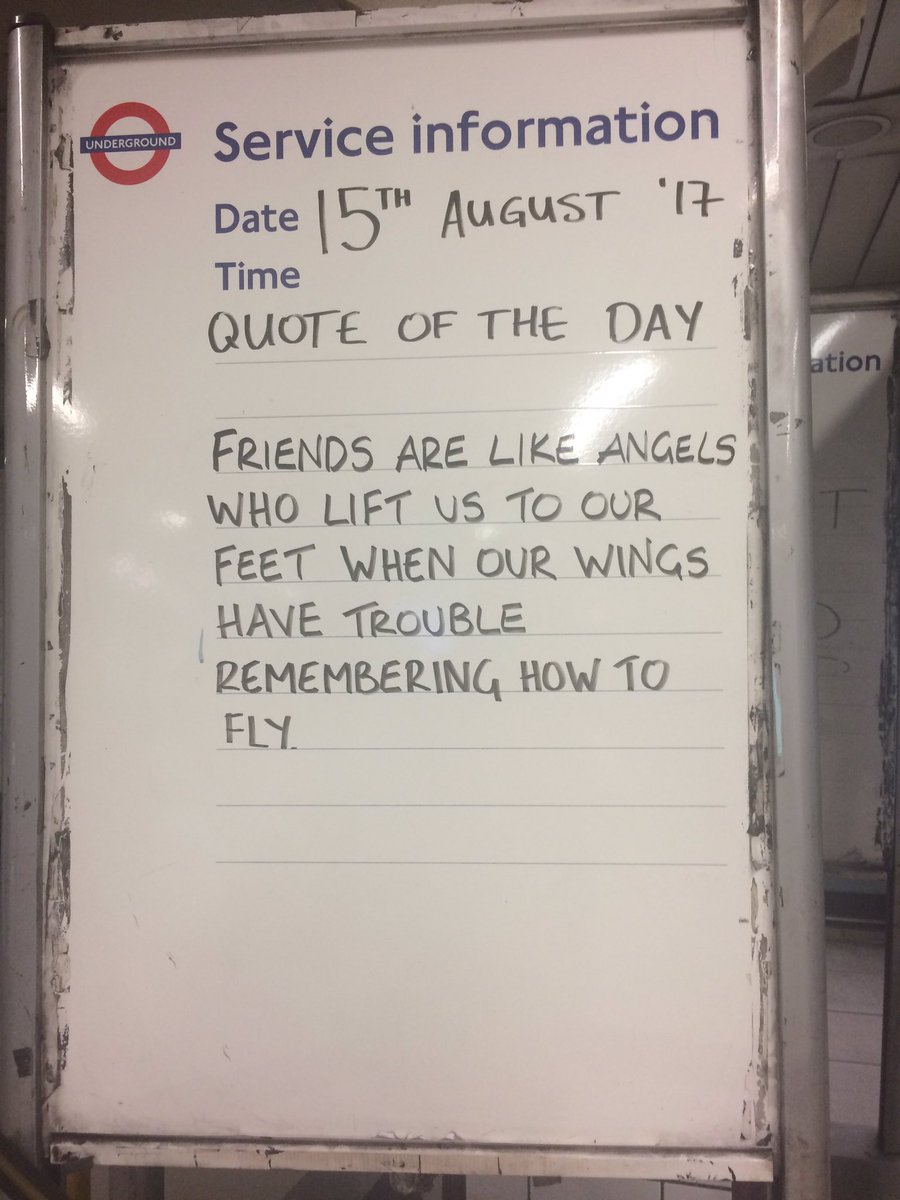 UNDERGROUND
Service information
Date 15TH AUGUST '17
Time
QUOTE OF THE DAY
FRIENDS ARE LIKE ANGELS
WHO LIFT US TO OUR
FEET WHEN OUR WINGS
HAVE TROUBLE
REMEMBERING HOW TO
FLY.
ation
T